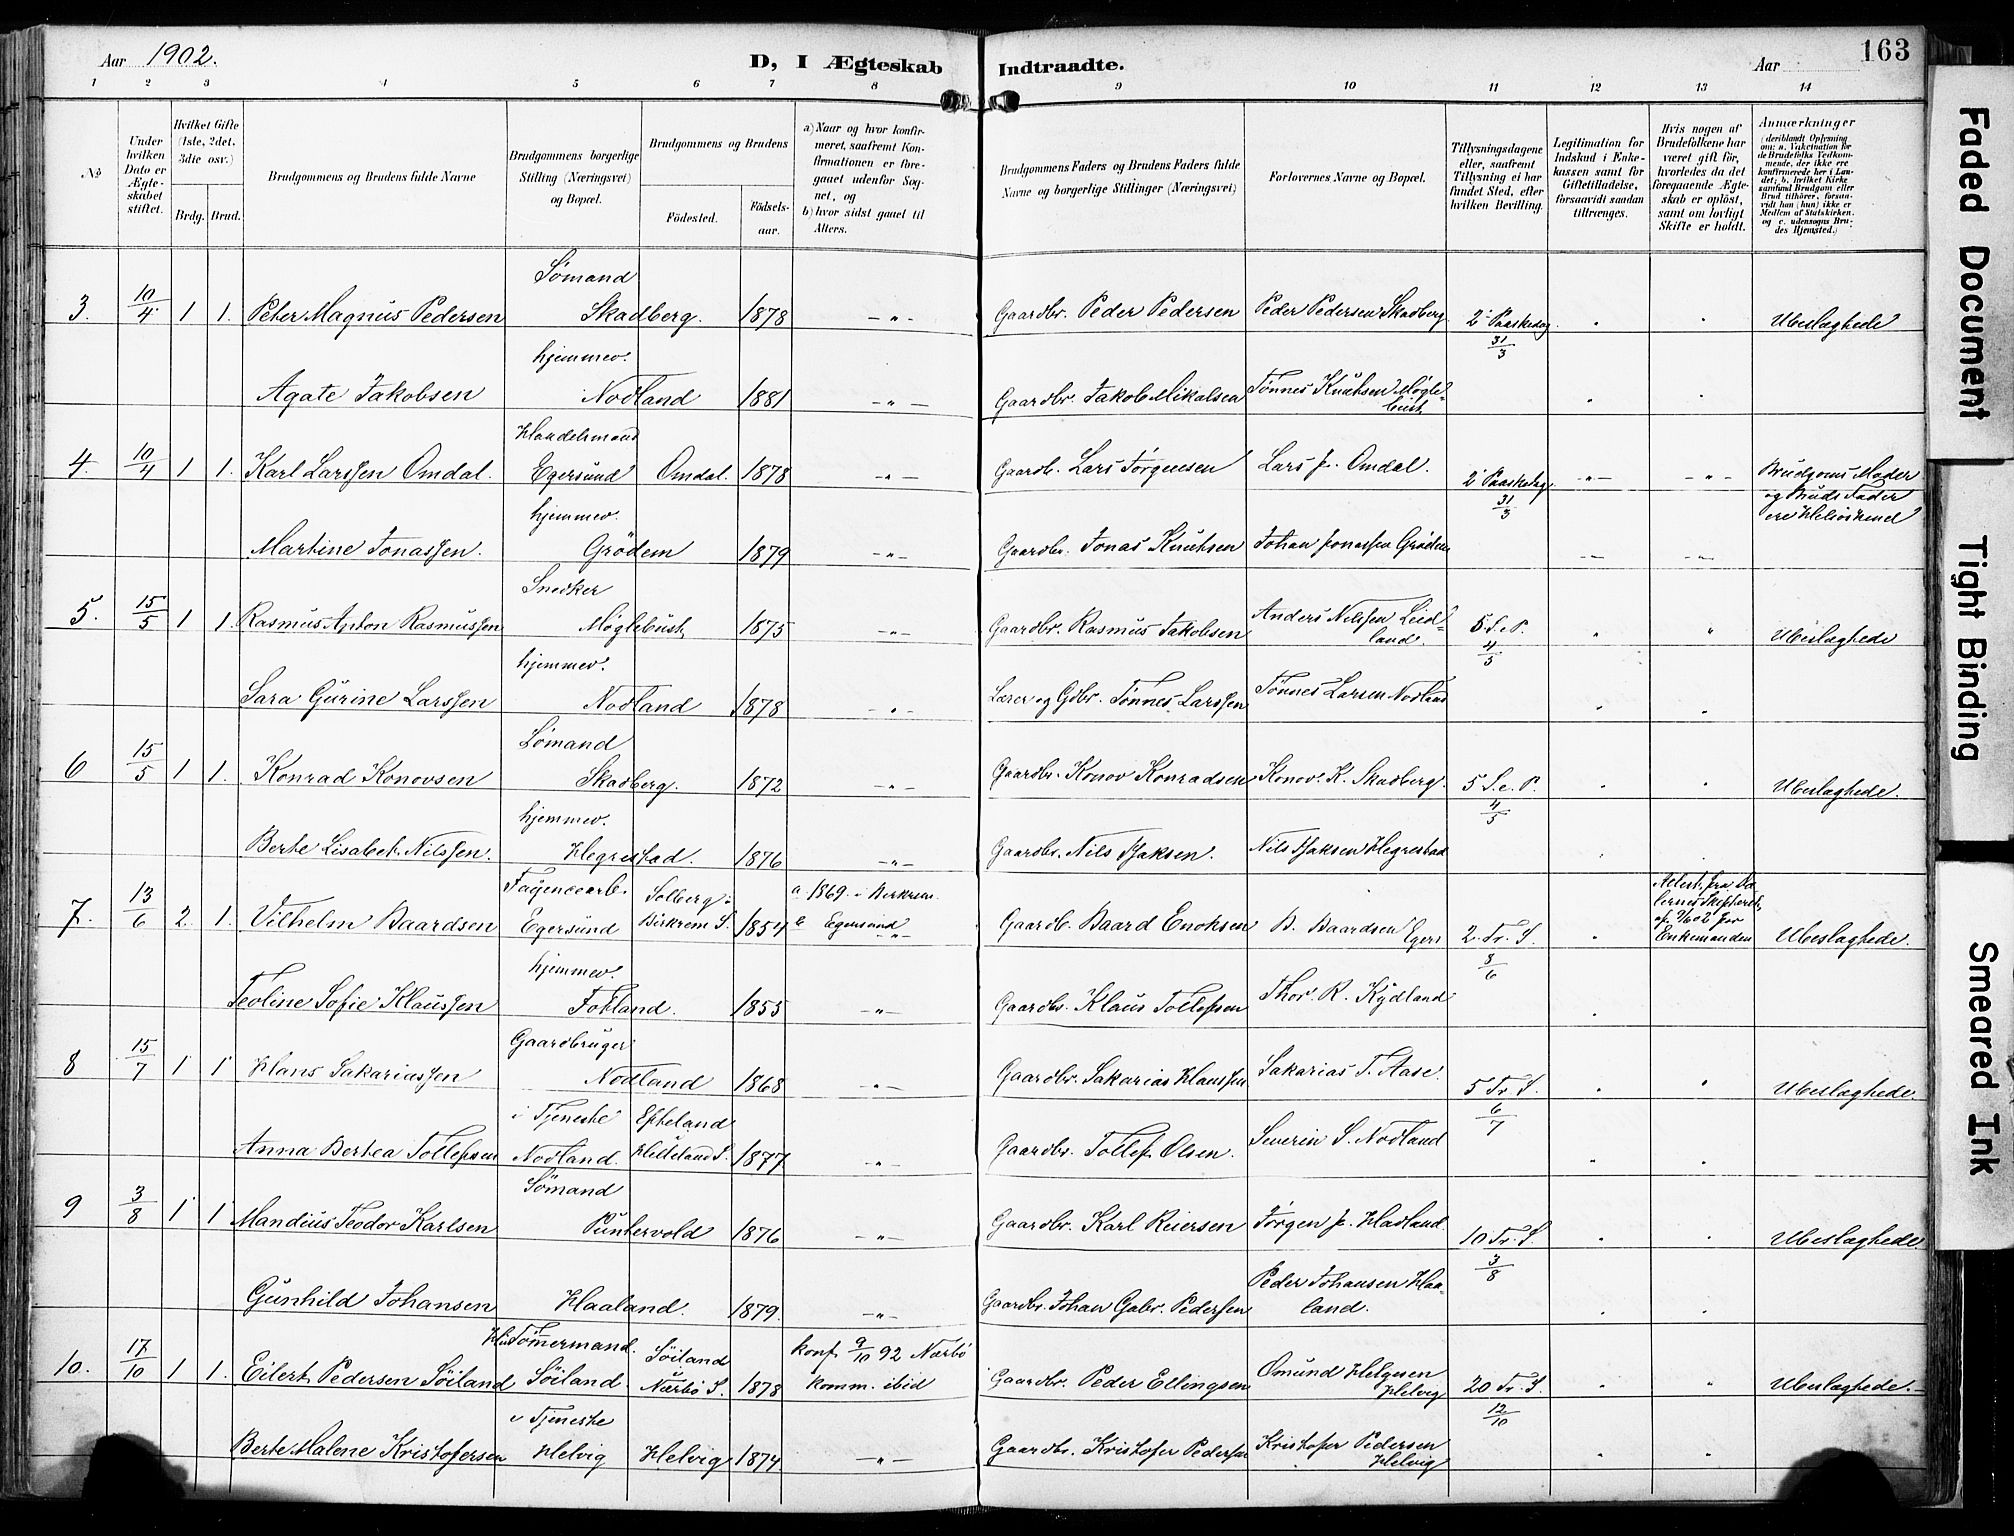 Aar 1902. D, I Ægteskab Indtraadte. Aar 163
1 2 3 4 5 6 7 8 9 10 11 12 13 14
No
Under hvilken Dato er Ægteskabet stiftet.
Hvilket Gifte (1ste, 2det, 3die osv.)
Brdg. Brud.
Brudgommens og Brudens fulde Navne
Brudgommens borgerlige Stilling (Næringsvei) og Bopæl.
Brudgommens og Brudens
Födested. Födsels-aar.
a) Naar og hvor konfirmeret, saafremt Konfirmationen er foregaaet udenfor Sognet, og
b) hvor sidst gaaet til Alters.
Brudgommens Faders og Brudens Faders fulde Navne og borgerlige Stillinger (Næringsvei)
Forlovernes Navne og Bopæl.
Tillysningsdagene eller, saafremt Tillysning ei har fundet Sted, efter hvilken Bevilling.
Legitimation for Indskud i Enkekassen samt for Giftetilladelse, forsaavidt saadan tiltrænges.
Hvis nogen af Brudefolkene har været gift før, hvorledes da det foregaaende Ægteskab er opløst, samt om lovligt Skifte er holdt.
Anmærkninger (deriblandt Oplysning om: a. Vakcination for de Brudefolks Vedkommende, der ikke ere konfirmerede her i Landet; b. hvilket Kirkesamfund Brudgom eller Brud tilhører, forsaavidt han (hun) ikke er Medlem af Statskirken. og c. udensogns Brudes Hjemsted.)
3. 10/4 1 1. Peter Magnus Pedersen Sømand Skadberg. 1878 —"— Gaardbr. Peder Pedersen Peder Pedersen Skadberg 2. Paaskedag 31/3 Ubeslægtede
Agate Jakobsen hjemmev. Nodland 1881 —"— Gaardbr. Jakob Mikalsen Tønnes Knudsen Møglebust
4. 10/4 1 1. Karl Larssen Omdal. Handelsmand Egersund Omdal. 1878 —"— Gaardb. Lars Jørgensen Lars J. Omdal. 2 Paaskedag 31/3 —"— —"— Brudgoms Moder og Bruds Fader ere Helsøskend
Martine Jonassen. hjemmev. Grödem 1879 —"— Gaardbr. Jonas Knudsen Johan Jonassen Grödem —"— —"—
5. 15/5 1 1. Rasmus Anton Rasmussen Snedker Møglebust 1875 —"— Gaardbr. Rasmus Jakobsen Anders Nilssen Leidland. 5 S. e P. 4/5 Ubeslægtede
Sara Gurine Larssen hjemmev. Nodland 1878 —"— Lærer og Gdbr. Tønnes Larssen Tönnes Larsen Nodland
6 15/5 1 1. Konrad Konovsen Sømand Skadberg. 1872 —"— Gaardbr. Konov Konradsen Konov. K. Skadberg. 5 S. e. P. 4/5 Ubeslægtede.
Berte Lisabet Nilssen. hjemmev. Hegrestad. 1876 —"— Gaardbr. Nils Isaksen. Nils Isaksen Hegrestad
7. 13/6 2. 1. Vilhelm Baardsen Fayencearb. Egersund Solberg i Birkrem S. 1854 a. 1869. i Birkrem. b Egersund Gaardb. Baard Enoksen B. Baardsen Egers 2. Tr. S. 8/6 Attest. fra af 9/6 02 for Enkemanden Ubeslægtede.
Teoline Sofie Klaussen hjemmev. Fotland. 1855 —"— Gaardbr. Klaus Tollefsen Thor. R. Kydland
8 15/7 1 1 Hans Sakariassen Gaardbruger Nodland 1868 —"— Gaardbr. Sakarias Hanssen Sakarias T. Aase. 5 Tr S. 6/7 Ubeslægtede.
Anna Bertea Tollefsen i Tjeneste Nodland. Efteland Hetland S. 1877 —"— Gaardbr. Tollef Olsen. Severin S. Nodland
9 3/8 1 1 Mandius Teodor Karlsen Sømand Puntervold 1876 —"— Gaardbr. Karl Reiersen Jørgen J. Hadland. 10 Tr. S. 3/8 Ubeslægtede.
Gunhild Johansen Haaland. 1879. —"— Gaardbr. Johan Gabr. Pedersen Peder Johansen Haaland.
10. 17/10 1 1. Eilert Pedersen Söiland Tömmermand. Söiland. Söiland Nærbö S. 1878 konf 9/10 92 Nærbö komm. ibid Gaardbr. Peder Ellingsen Omund Helgesen Helvig 20 Tr. S. 12/10 Ubeslægtede.
Berte Malene Kristofersen i Tjeneste Helvig Helvig 1874 —"— Gaardbr. Kristofer Pedersen Kristofer Pedersen Helvig
Faded Document
Tight Binding
Smeared Ink